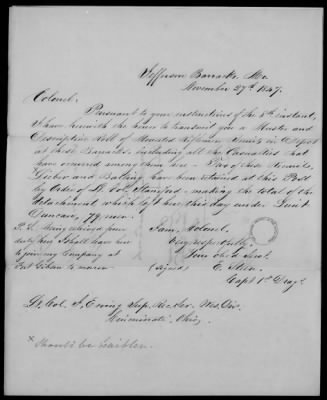 Jefferson Barracks Mo.
November 27th 1847.
Colonel.
Pursuant to your instructions of the 8th instant,
I have herewith the honor to transmit you a Muster and
Descriptive Roll of Mounted Riflemen Recruits in Depot
at these Barracks, including all the Casualties that
have occurred among them since - Two of these Recruits,
and have been retained at this Post
by Order of Lt. Col. making the total of the
detachment which left here this day under Lieut.
Duncan, 77 men.
P.S. Being relieved from I am, Colonel.
duty here I shall leave here Very respectfully.
to join my Company at Your Obdt Servt.
Fort to morrow (signed) E. Steen
Capt 1st Drags
Lt. Col. J. Ewing Sup. Rec. Ser. Wes. Div.
Cincinnati, Ohio,
* Should be